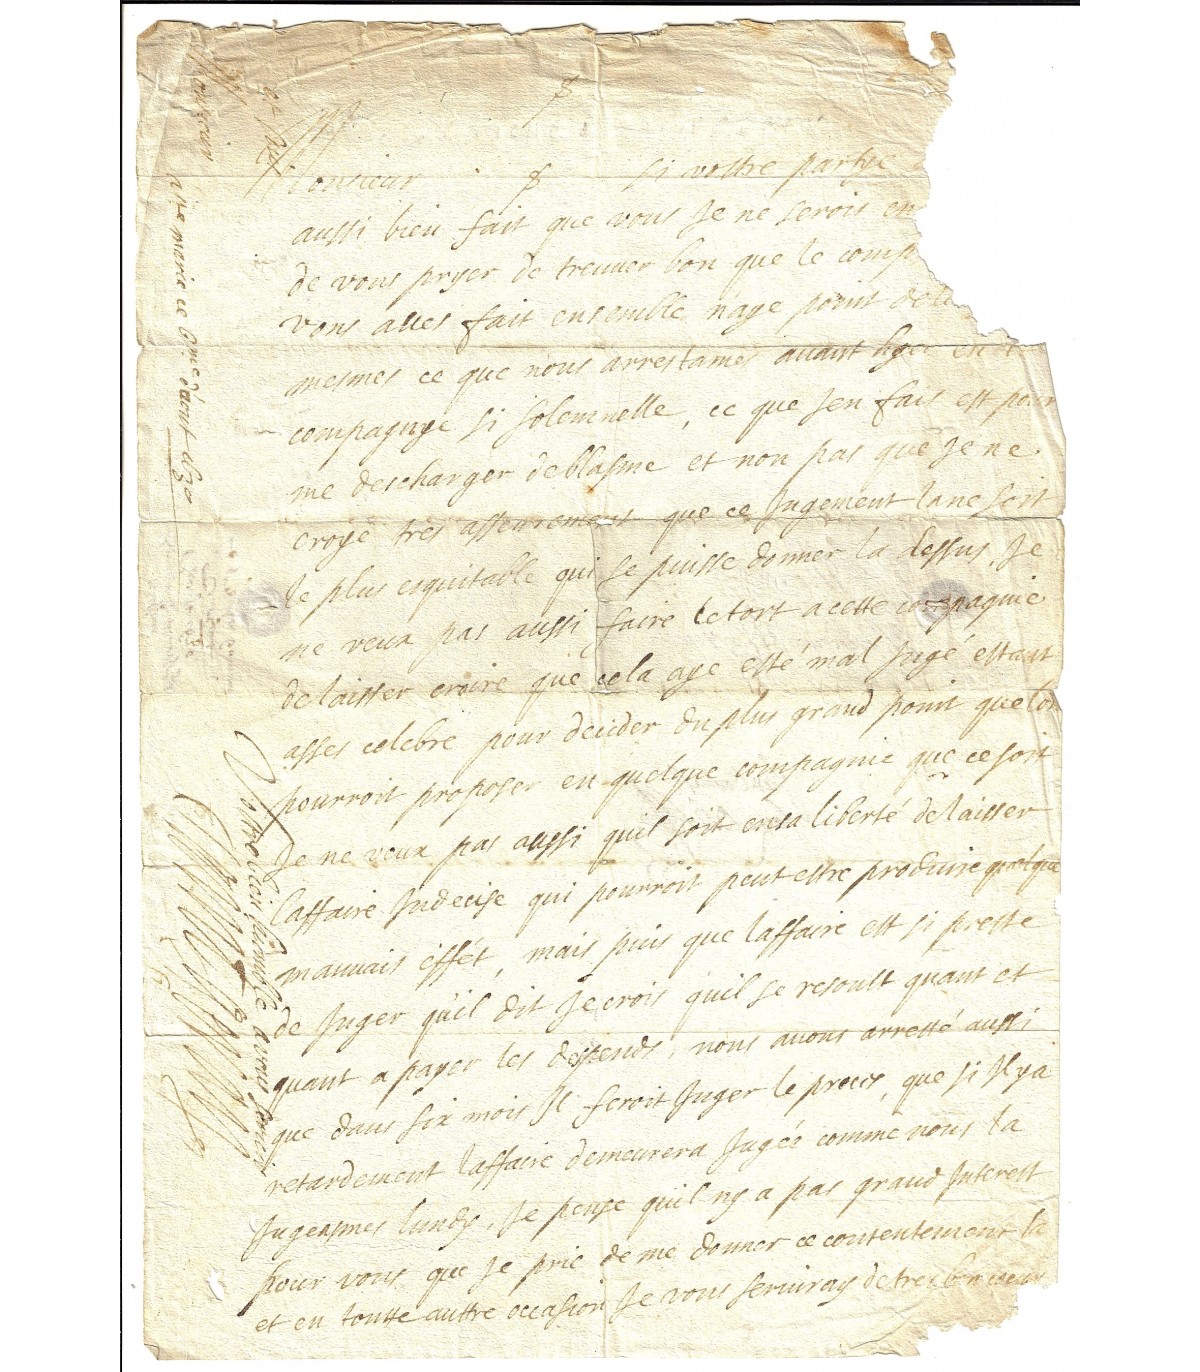 Monsieur si vostre partye
aussi bien fait que vous Je ne serois en
de vous pryer de treuver bon que le comp
vous alles fait ensemble naye point de
mesmes ce que nous arrestames avant hyer en
compagnye si solemnelle, ce que Jen fais est pour
me descharger de blasme et non pas que Je ne
croye tres asseurement que ce Jugement la ne soit
le plus esquitable qui se puisse donner la dessus, Je
ne veux pas aussi faire le tort a cette compagnie
de laisser croire que cela aye esté mal Jugé estant
asses celebre pour decider du plus grand point que lon
pourroit proposer en quelque compagnie que ce soit
Je ne veux pas aussi quil soit en sa liberté de laisser
laffaire Indecise qui pourroit peut estre produire quelque
mauvais effét, mais puis que laffaire est si preste
de Juger quil dit Je crois quil se resoult quant et
quant a payer les despends, nous avons arresté aussi
que dans six mois Il feroit Juger le proces, que si Il y a
retardement laffaire demeurera Jugée comme nous la
Jugeasmes lundy, Je pense quil ny a pas grand Interest
pour vous que Je prie de me donner ce contentement la
et en toutte auttre occasion Je vous serviray de tres bon cueur
Vostre tres humble
marie ce d'aout 1630